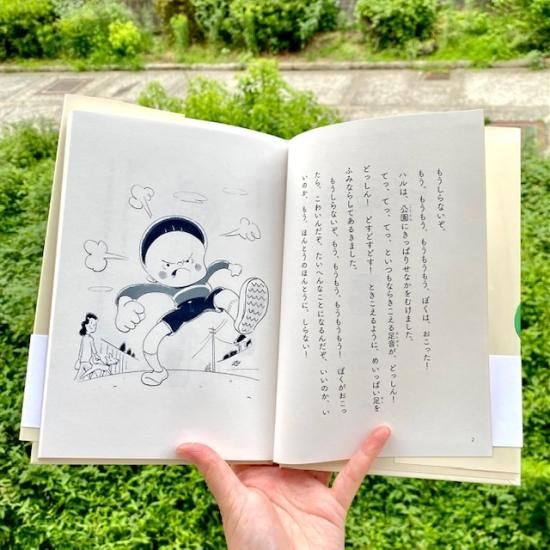 もうしらないぞ。
もう、もうもう、もうもうもう、ぼくは、おこった!
ハルは、公園にきっぱりせなかをむけました。
てっ、てっ、てっ、といつもならきこえる足音が、どっしん!
どっしん! どすどすどす! ときこえるように、めいっぱい足を
ふみならしてあるきました。
もうしらないぞ、もう、もうもう、もうもうもう! ぼくがおこっ
たら、こわいんだぞ、たいへんなことになるんだぞ、いいのか、い
いのか、もう、ほんとうのほんとうに、しらない!
2